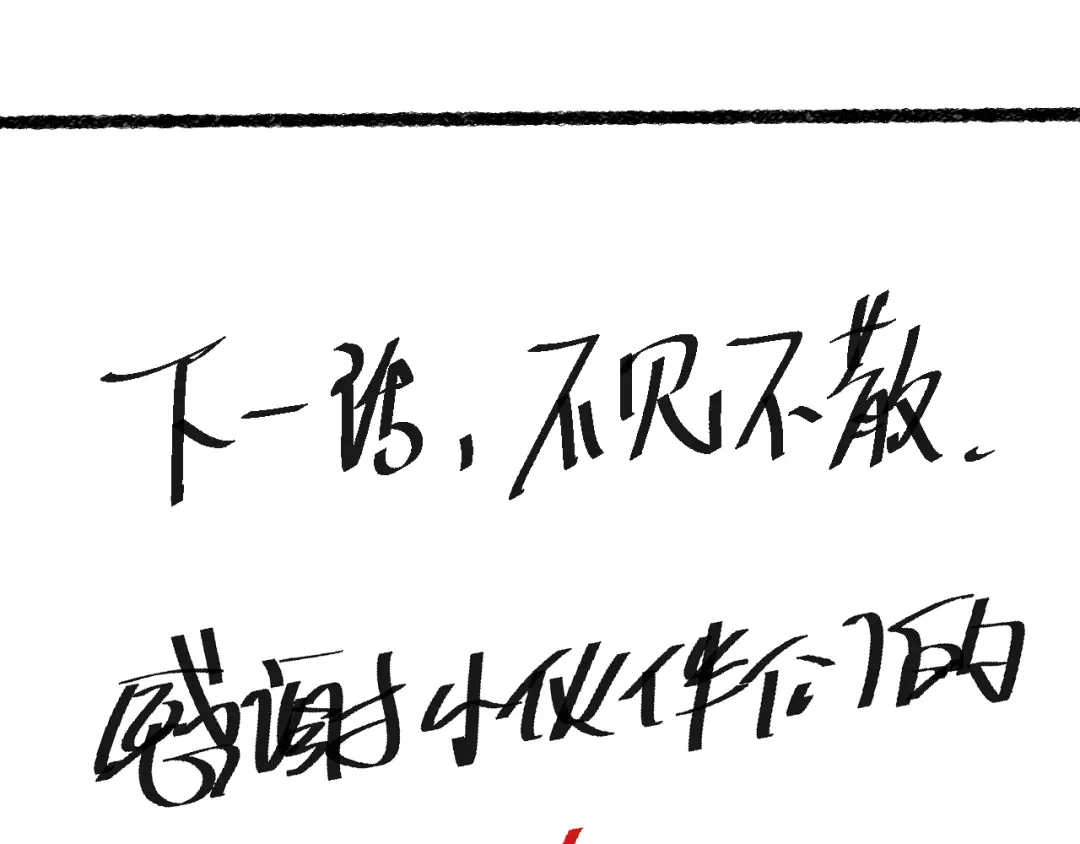 下一话,不见不散.
感谢小伙伴们的